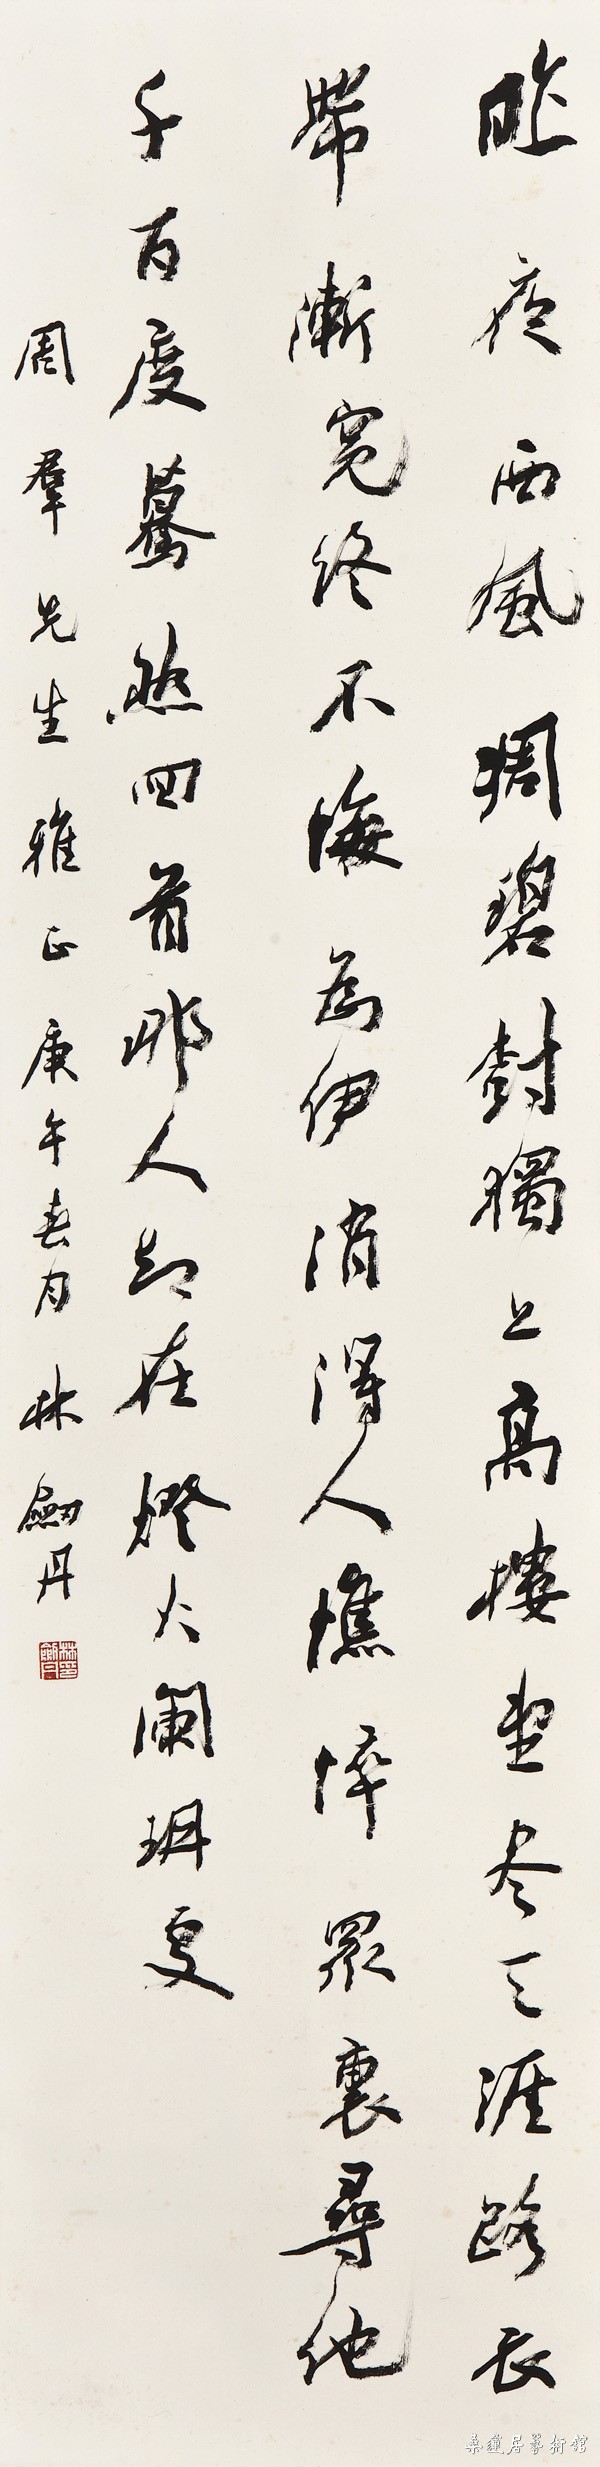 昨夜西風凋碧樹獨上高樓望尽天涯路長
帶漸寬終不悔為伊消得人憔悴眾裏尋他
千百度驀然回首那人却在燈火闌珊處
周羣先生雅正庚午春月林劍丹
林劍丹印
桑蓮居藝術館